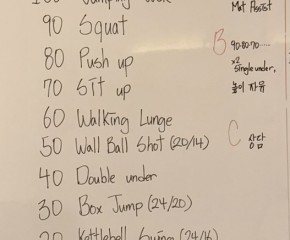 90 Squat
80 Push up
70 Sit up
60 Walking Lunge
50 Wall Ball Shot (20/14)
40 Double under
30 Box Jump (24/20)
Kettlebell Swing (24/16)
Met Assist
B
90-80-70.....
x2
single under,
높이 자유
C
상담